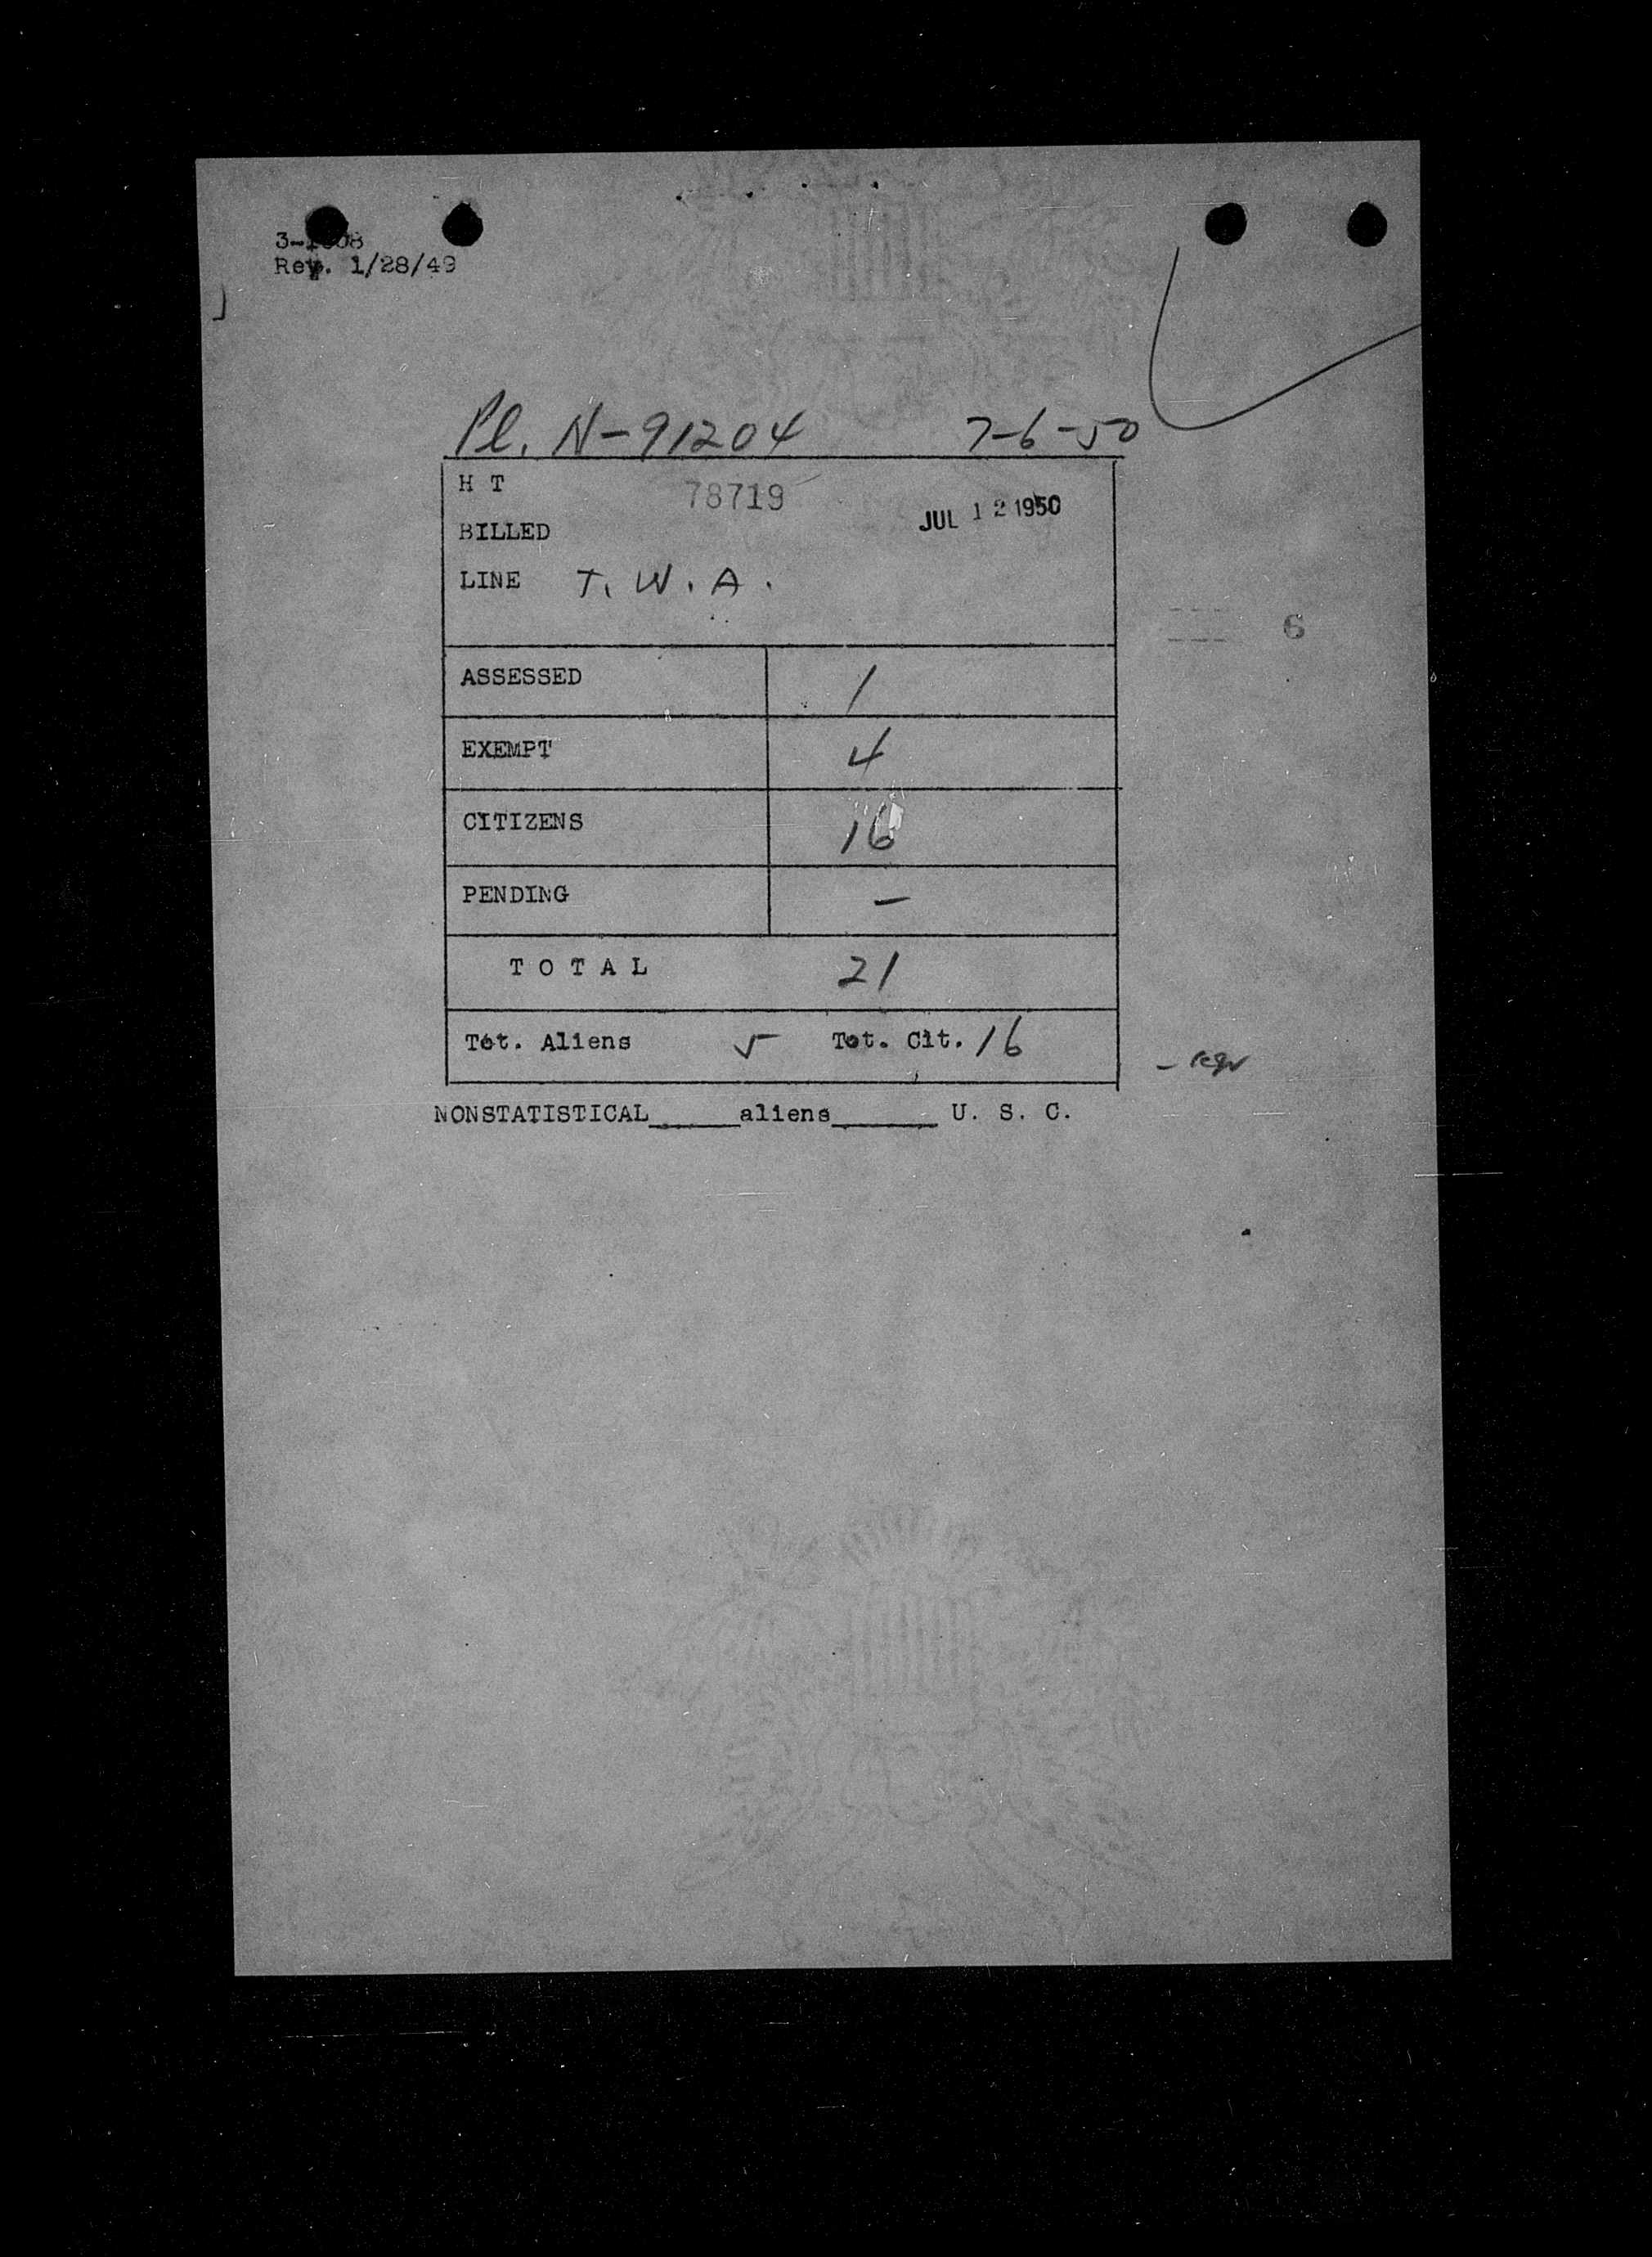 Rev. 1/28/49
Pl. N-91204 7-6-50
H T 78719
JUL 12 1950
BILLED
LINE T. W. A.
6
ASSESSED 1
EXEMPT 4
CITIZENS 16
PENDING -
T O T A L 21
Tot. Aliens 5 Tot. Cit. 16
NONSTATISTICAL_____aliens______ U. S. C.